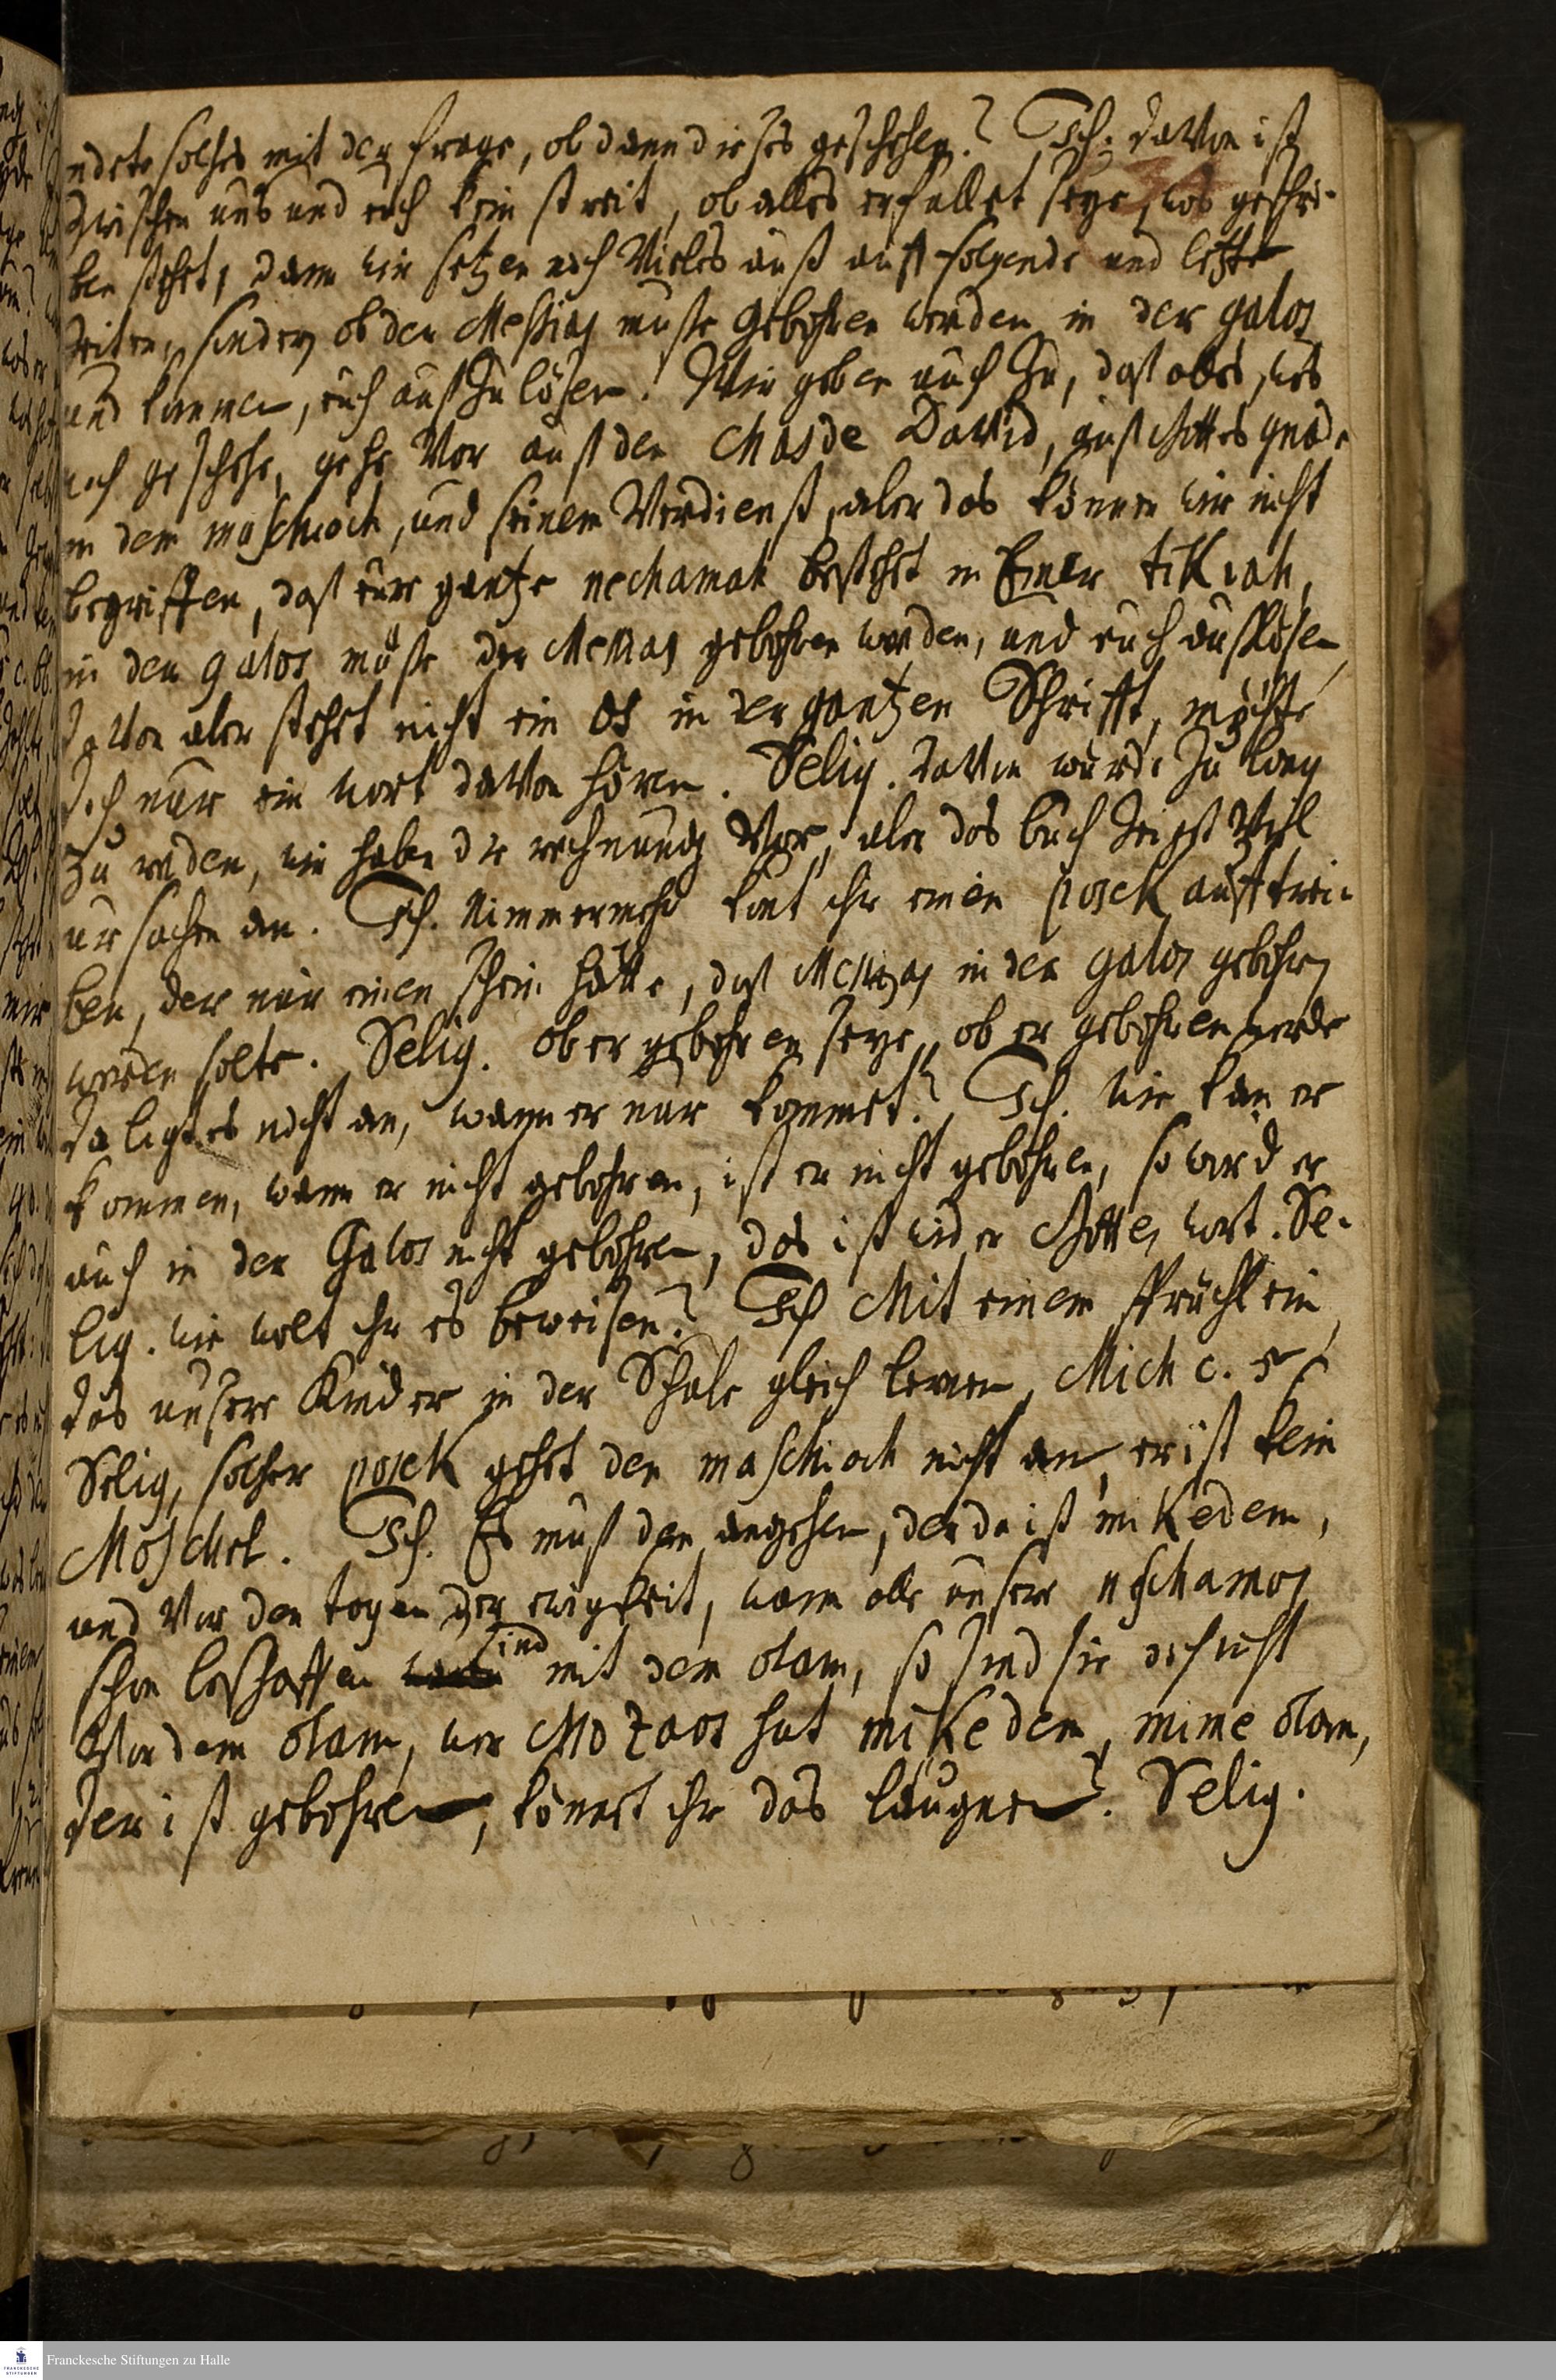 endete solches mit der frage, ob dann dieses geschehen? Ich: davon ist
zwischen uns und euch kein streit, ob alles erfüllet seye, was geschri-
ben stehet, dann wir setzen noch Vieles auß auff folgende und letste
zeiten, sondern ob der Messias muste gebohren werden in der galos
und kommen, euch außzulösen. Wir geben auch zu, daß alles, was
noch geschehe, gehe Vor auß den Chasde David, auß Gottes gnade
in dem maschioch, und seinem Verdienst, aber das können wir nicht
begriffen, daß eure gantze nechamah bestehet in Einer tikvah,
in den galos müste der Messias gebohren werden, und euch außlösen,
davon aber stehet nicht ein os in der gantzen Schrifft, möchte
doch nur ein wort davon hören. Selig. davon würde zu lang
zu reden, wir haben die rechnung Vor, aber das buch zeigt Vihl
ursachen an. Ich. Nimmermehr könt ihr einen posek aufftrei-
ben, der nur einen schein hätte, daß Messias in der galos gebohren
werden solte. Selig. ob er gebohren seye, ob er gebohren werde
da ligt es nicht an, wann er nur kommet? Ich. wie kan er
kommen, wann er nicht gebohren, ist er nicht gebohren, so wird er
auch in der Galos nicht gebohren, das ist wider Gottes wort. Se-
lig. wie wolt ihr es beweisen? Ich Mit einem sprüchlein,
das unsere Kinder in der Schule gleich lernen, Mich c. 5
Selig, solcher posek gehet den maschioch nicht an, er ist kein
Moschel. Ich. Es muß den angehen, der da ist mikedem,
und Vor den tagen der ewigkeit, wann alle unsere neschamos
schon beschaffen sind mit dem olam, so sind sie doch nicht
Vor dem olam, wer Mozaos hat mikedem, mime olam,
der ist gebohren, könnet ihr das läugnen? Selig.
Franckesche Stiftungen zu Halle